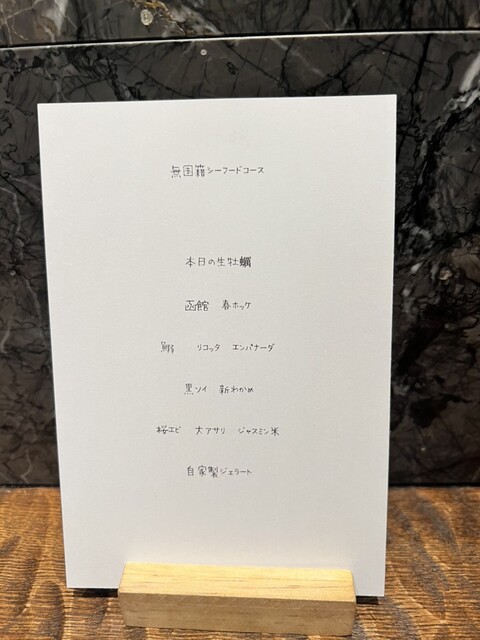 無国籍シーフードコース
本日の生牡蠣
函館 春ホッケ
鰯 リコッタ エンパナーダ
黒ソイ 新わかめ
桜エビ 大アサリ ジャスミン米
自家製ジェラート